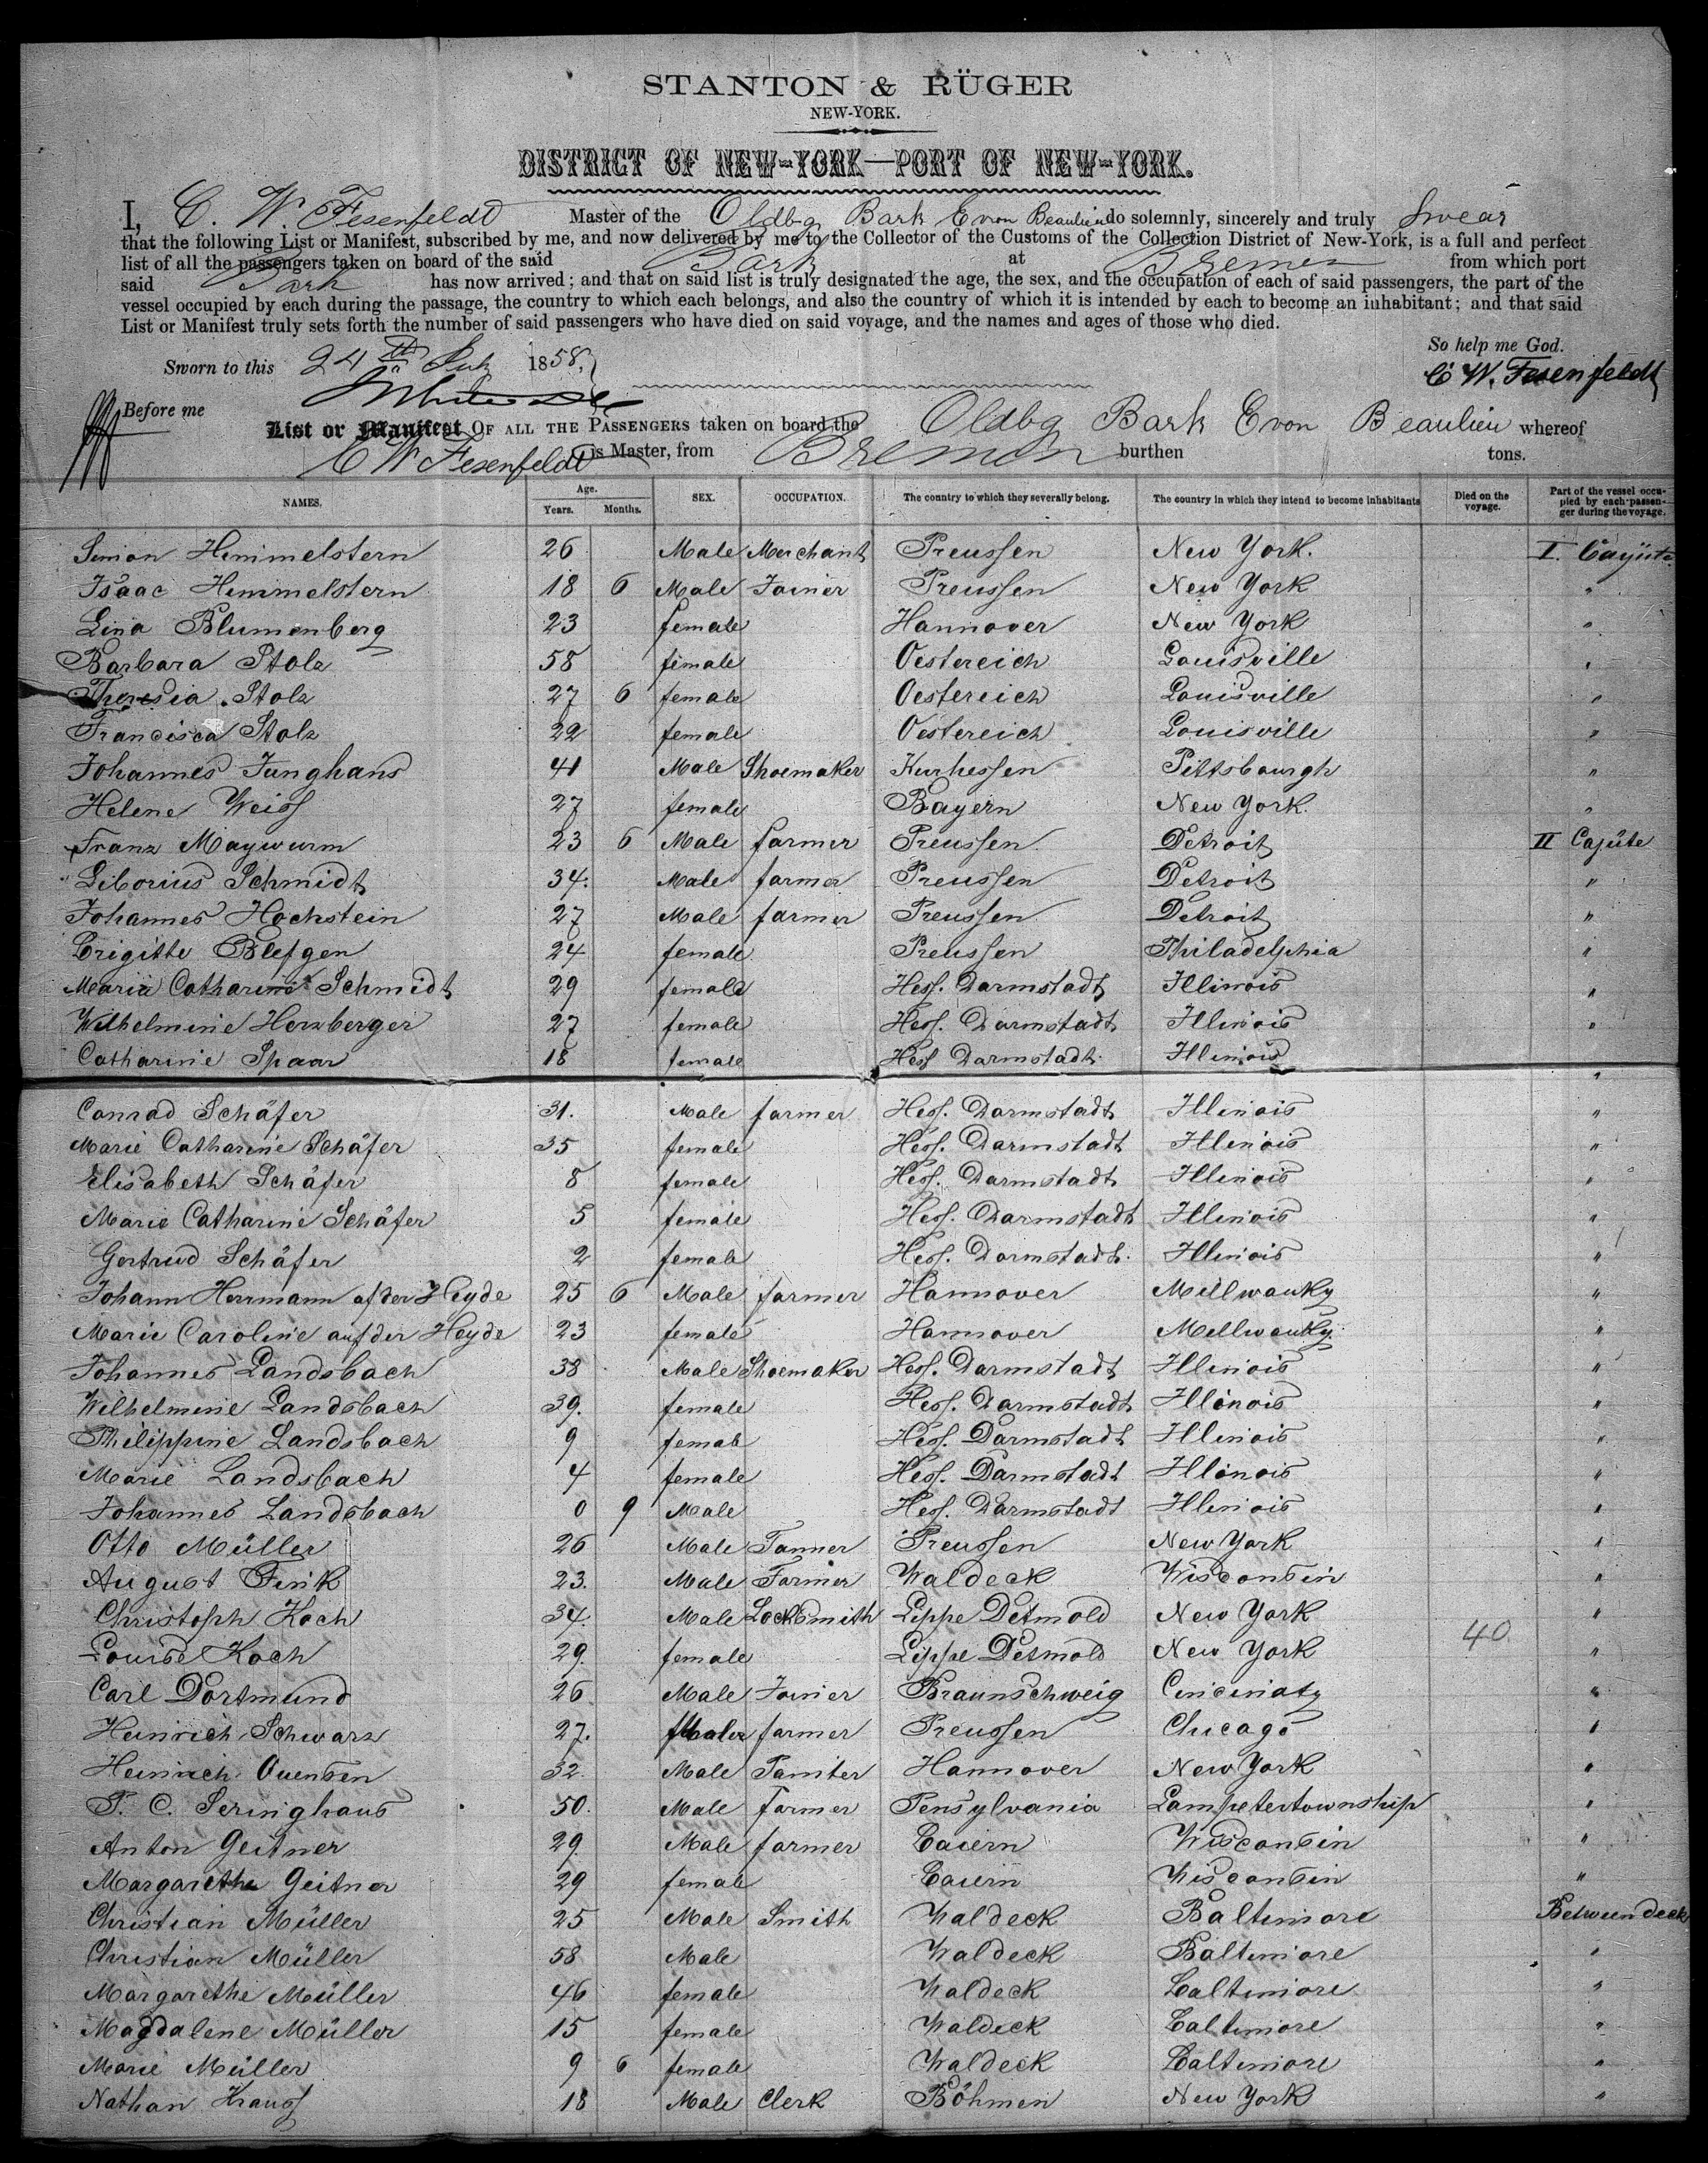 STANTON & RÜGER
NEW-YORK.
DISTRICT OF NEW-YORK—PORT OF NEW-YORK.
I, C. W. Fesenfeldt Master of the Oldbg Bark E von Beaulieu do solemnly, sincerely and truly swear
that the following List or Manifest, subscribed by me, and now delivered by me to the Collector of the Customs of the Collection District of New-York, is a full and perfect
list of all the passengers taken on board of the said Bark at Bremen from which port
said Bark has now arrived; and that on said list is truly designated the age, the sex, and the occupation of each of said passengers, the part of the
vessel occupied by each during the passage, the country to which each belongs, and also the country of which it is intended by each to become an inhabitant; and that said
List or Manifest truly sets forth the number of said passengers who have died on said voyage, and the names and ages of those who died.
So help me God.
Sworn to this 24th 1858,
C W. Fesenfeldt
Before me
List or Manifest OF ALL THE PASSENGERS taken on board the Oldbg Bark E von Beaulieu whereof
C W Fesenfeldt is Master, from Bremen burthen tons.
NAMES. Age. Years. Months. SEX. OCCUPATION. The country to which they severally belong. The country in which they intend to become inhabitants Died on the voyage. Part of the vessel occupied by each passenger during the voyage.
Simon Himmelstern 26 Male Merchant Preussen New York. I. Cajüte
Isaac Himmelstern 18 6 Male Joiner Preussen New York "
Lina Blumenberg 23 female Hannover New York "
Barbara Stolz 58 female Oestereich Louisville "
Theresia Stolz 27 6 female Oestereich Louisville "
Francisca Stolz 22 female Oestereich Louisville "
Johannes Junghans 41 Male Shoemaker Kurhessen Pittsbourgh "
Helene Weiss 27 female Bayern New York. "
Franz Maywurm 23 6 Male farmer Preussen Detroit II Cajüte
Liborius Schmidt 34. Male farmer Preussen Detroit "
Johannes Hochstein 27 Male farmer Preussen Detroit "
Brigitte Blefgen 24 female Preussen Philadelphia "
Maria Catharine Schmidt 29 female Hess. Darmstadt Illinois "
Wilhelmine Herzberger 27 female Hess. Darmstadt Illinois "
Catharine Spaar 18 female Hess Darmstadt. Illinois "
Conrad Schäfer 31. Male farmer Hess. Darmstadt Illinois "
Marie Catharine Schäfer 35 female Hess. Darmstadt Illinois "
Elisabeth Schäfer 8 female Hess. Darmstadt Illinois "
Marie Catharine Schäfer 5 female Hess. Darmstadt Illinois "
Gertrud Schäfer 2 female Hess. Darmstadt. Illinois "
Johann Herrmann af der Heyde 25 6 Male farmer Hannover Millwauky "
Marie Caroline auf der Heyde 23 female Hannover Millwauky "
Johannes Landsbach 38 Male Shoemaker Hess. Darmstadt Illinois "
Wilhelmine Landsbach 39. female Hess. Darmstadt Illinois "
Philippine Landsbach 9 female Hess. Darmstadt Illinois "
Marie Landsbach 4 female Hess. Darmstadt Illinois "
Johannes Landsbach 0 9 Male Hess. Darmstadt Illinois "
Otto Müller 26 Male Tanner Preussen New York "
August Fink 23. Male Farmer Waldeck Wisconsin "
Christoph Koch 34. Male Locksmith Lippe Detmold New York "
Louise Koch 29. female Lippe Detmold New York 40. "
Carl Dortmund 26 Male Joiner Braunschweig Cincinaty "
Heinrich Schwarz 27. Male farmer Preussen Chicago "
Heinrich Ouensen 32. Male Painter Hannover New York "
P. C. Seringhaus 50. Male Farmer Pensylvania Lampetertownship "
Anton Geitner 29. Male farmer Baiern Wisconsin "
Margarethe Geitner 29 female Baiern Wisconsin "
Christian Müller 25 Male Smith Waldeck Baltimore Betweendeck
Christian Müller 58 Male Waldeck Baltimore "
Margarethe Müller 46 female Waldeck Baltimore "
Magdalene Müller 15 female Waldeck Baltimore "
Marie Müller 9 6 female Waldeck Baltimore "
Nathan Krauss 18 Male Clerk Böhmen New York "